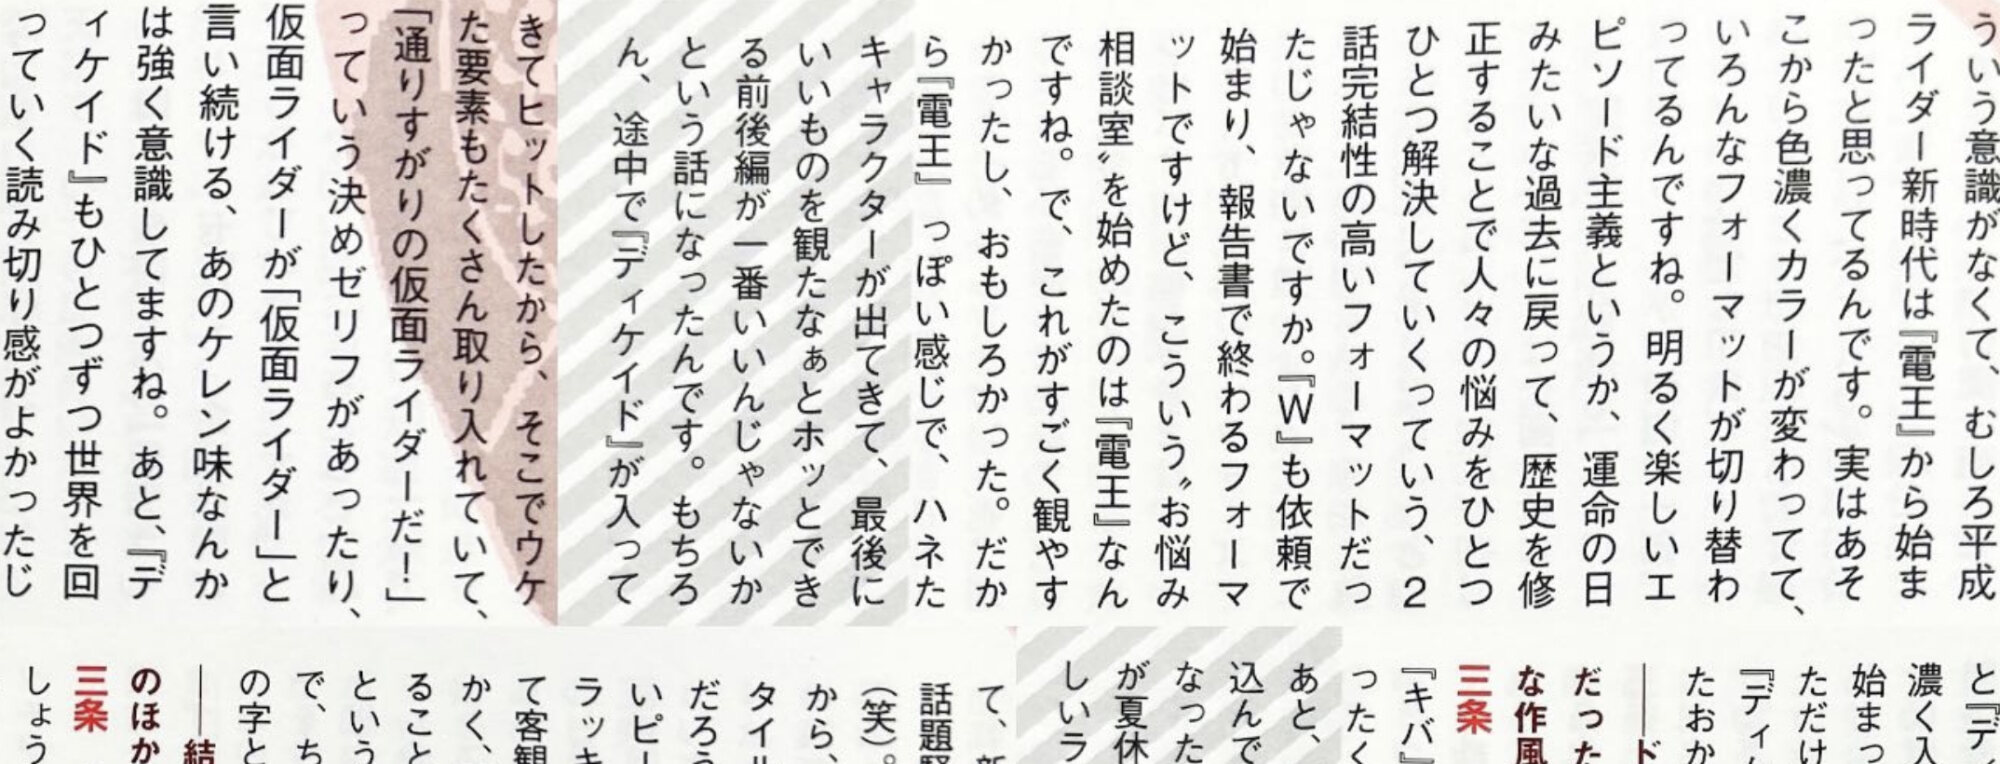 ういう意識がなくて、むしろ平成
ライダー新時代は『電王』から始ま
ったと思ってるんです。実はあそ
こから色濃くカラーが変わってて、
いろんなフォーマットが切り替わ
ってるんですね。明るく楽しいエ
ピソード主義というか、運命の日
みたいな過去に戻って、歴史を修
正することで人々の悩みをひとつ
ひとつ解決していくっていう、2
話完結性の高いフォーマットだっ
たじゃないですか。『W』も依頼で
始まり、報告書で終わるフォーマ
ットですけど、こういう〝お悩み
相談室〟を始めたのは『電王』なん
ですね。で、これがすごく観やす
かったし、おもしろかった。だか
ら『電王』っぽい感じで、ハネた
キャラクターが出てきて、最後に
いいものを観たなぁとホッとでき
る前後編が一番いいんじゃないか
という話になったんです。もちろ
ん、途中で『ディケイド』が入って
きてヒットしたから、そこでウケ
た要素もたくさん取り入れていて、
「通りすがりの仮面ライダーだ！」
っていう決めゼリフがあったり、
仮面ライダーが「仮面ライダー」と
言い続ける、あのケレン味なんか
は強く意識してますね。あと、『デ
ィケイド』もひとつずつ世界を回
っていく読み切り感がよかったじ
と『ディ
濃く入
始まっ
ただけ
『ディ
たおか
――ド
だった
な作風
三条
『キバ』
ったく
あと、
込んで
なった
が夏休
しいラ
て、新
話題騒
（笑）。
から、
タイル
だろう
いピー
ラッキ
て客観
かく、
ること
という
で、ち
の字と
――結
のほか
三条
しょう